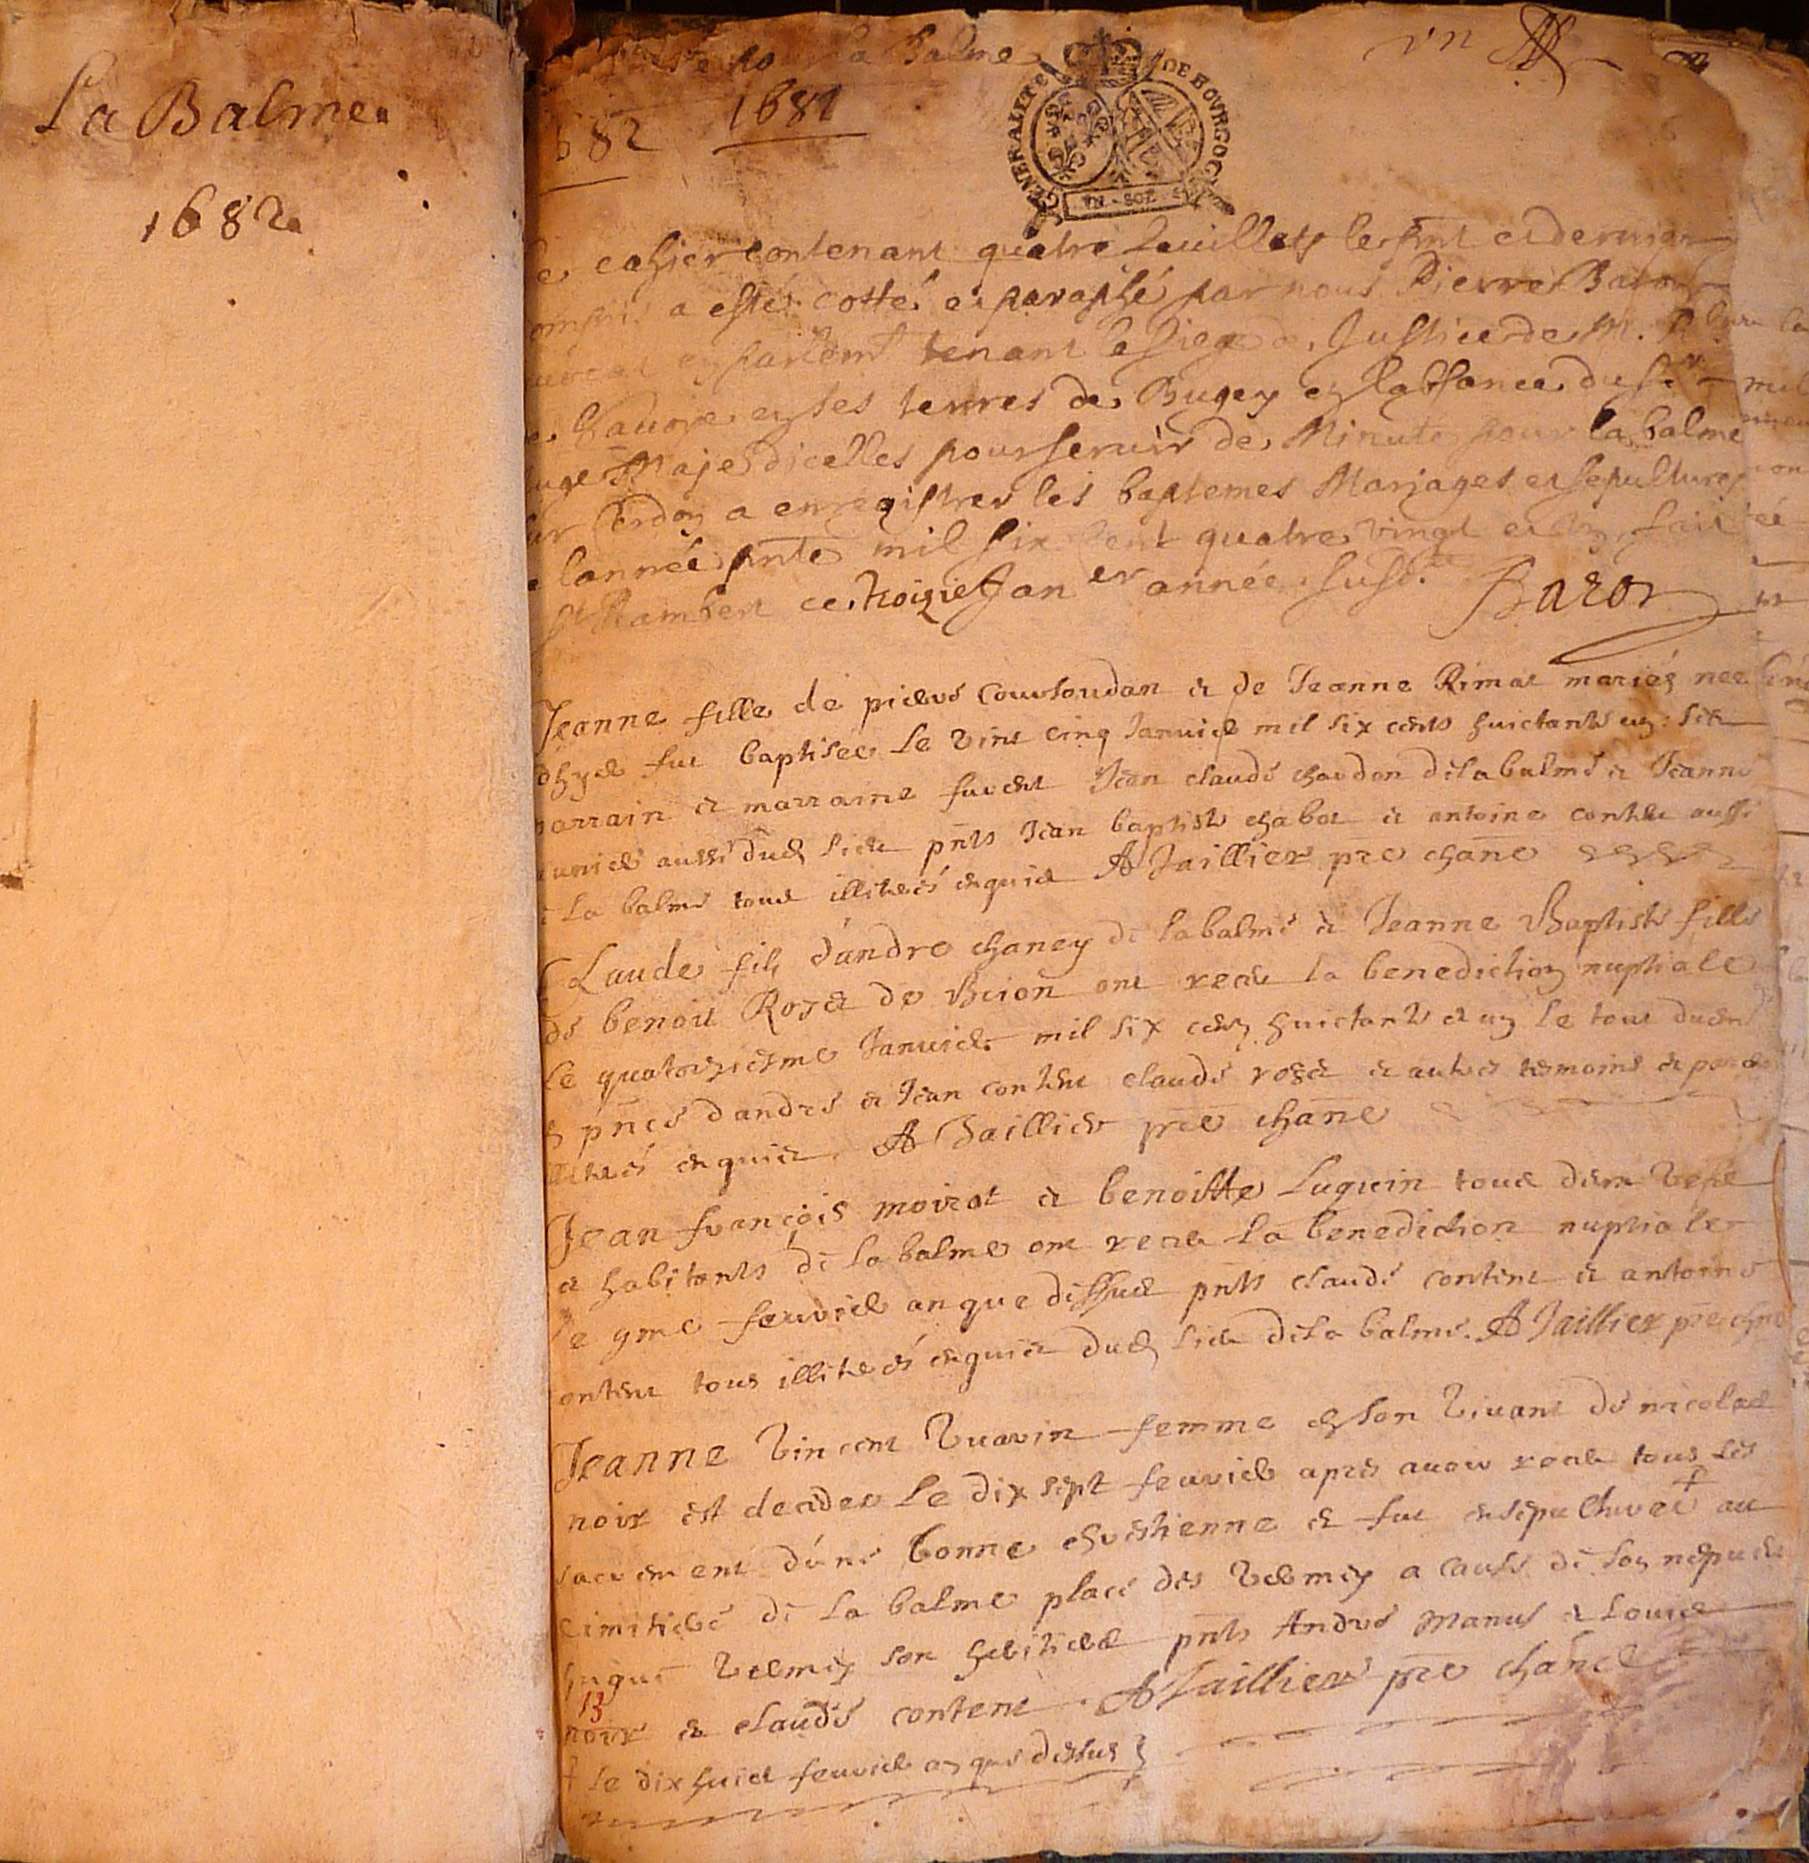 La Balme
1682
La Balme
un
682 1681
GENERALITE DE BOVRGOG
VN · SOL
cahier contenant quatre feuillets le pnt et dernier
a esté cotté et paraphé par nous Pierre
en parlemt tenant le siege de Justice de M.
Sauoye en ses terres de Bugey en l'absance du sr
juge Maje dicelles pour seruir de Minute pour la balme
sur Cerdon a enregistrer les baptemes Mariages et sepultures
lannée pnte mil six cent quatre vingt et un fait
St Rambert ce troizie Januer année susd.
Jeanne fille de pierre coursoudan et de Jeanne Rimat mariés nee
dhyer fut baptisee le vint cinq Januier mil six cents huictante un. Son
parrain et marraine furent Jean claude chardon de la balme et Jeanne
aussi dud lieu pnts Jean baptiste chabot et antoine content aussi
de La balme tous illiteres enquis A Jaillier pre chane
CLaude fils d'andre chaney de labalme et Jeanne Baptiste fille
de benoit Rozet de Bcion ont receu la benediction nuptiale
le quatorziesme Januier mil six cens huictante et un le tout duem
en pnce dandre et Jean content claude rozet et autres tesmoins et parans
illiteres enquis. A Jaillier pre chane
Jean françois moirat et benoitte Luguin tous deux
et habitants de la balme ont receu la benediction nuptiale
le 9me feurier an que dessus pnts claude content et antoine
content tous illiteres enquis dud lieu de la balme. A Jaillier pre chne
Jeanne Vincent Vuarin femme en son viuant de nicolas
noir est decedee le dix sept feurier apres auoir receu tous les
sacrement d'une bonne chrestienne et fut ensepulturee + au
cimitiere de la balme place des Vermey a cause de son
hugue Vermey son heritiere pnts André manus et Louis
13
noir et claude content. A Jaillier pre chane
+ le dix huict feurier an que dessus